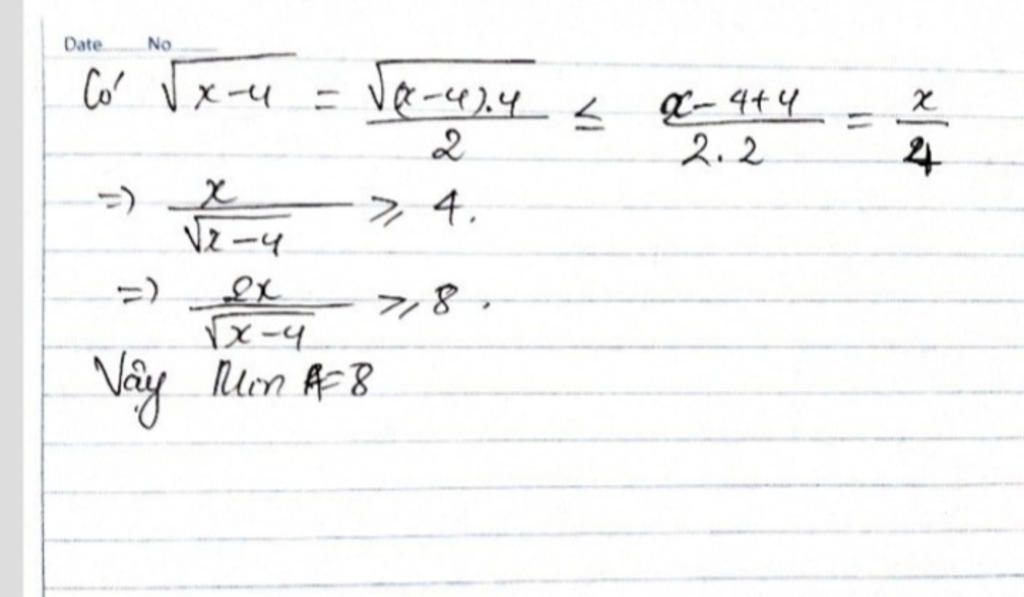 Date No
Có √(x-4) = √((x-4).4)/2 ≤ (x-4+4)/(2.2) = x/4
=) x/√(x-4) ≥ 4.
=) 2x/√(x-4) ≥ 8.
Vậy Min A=8